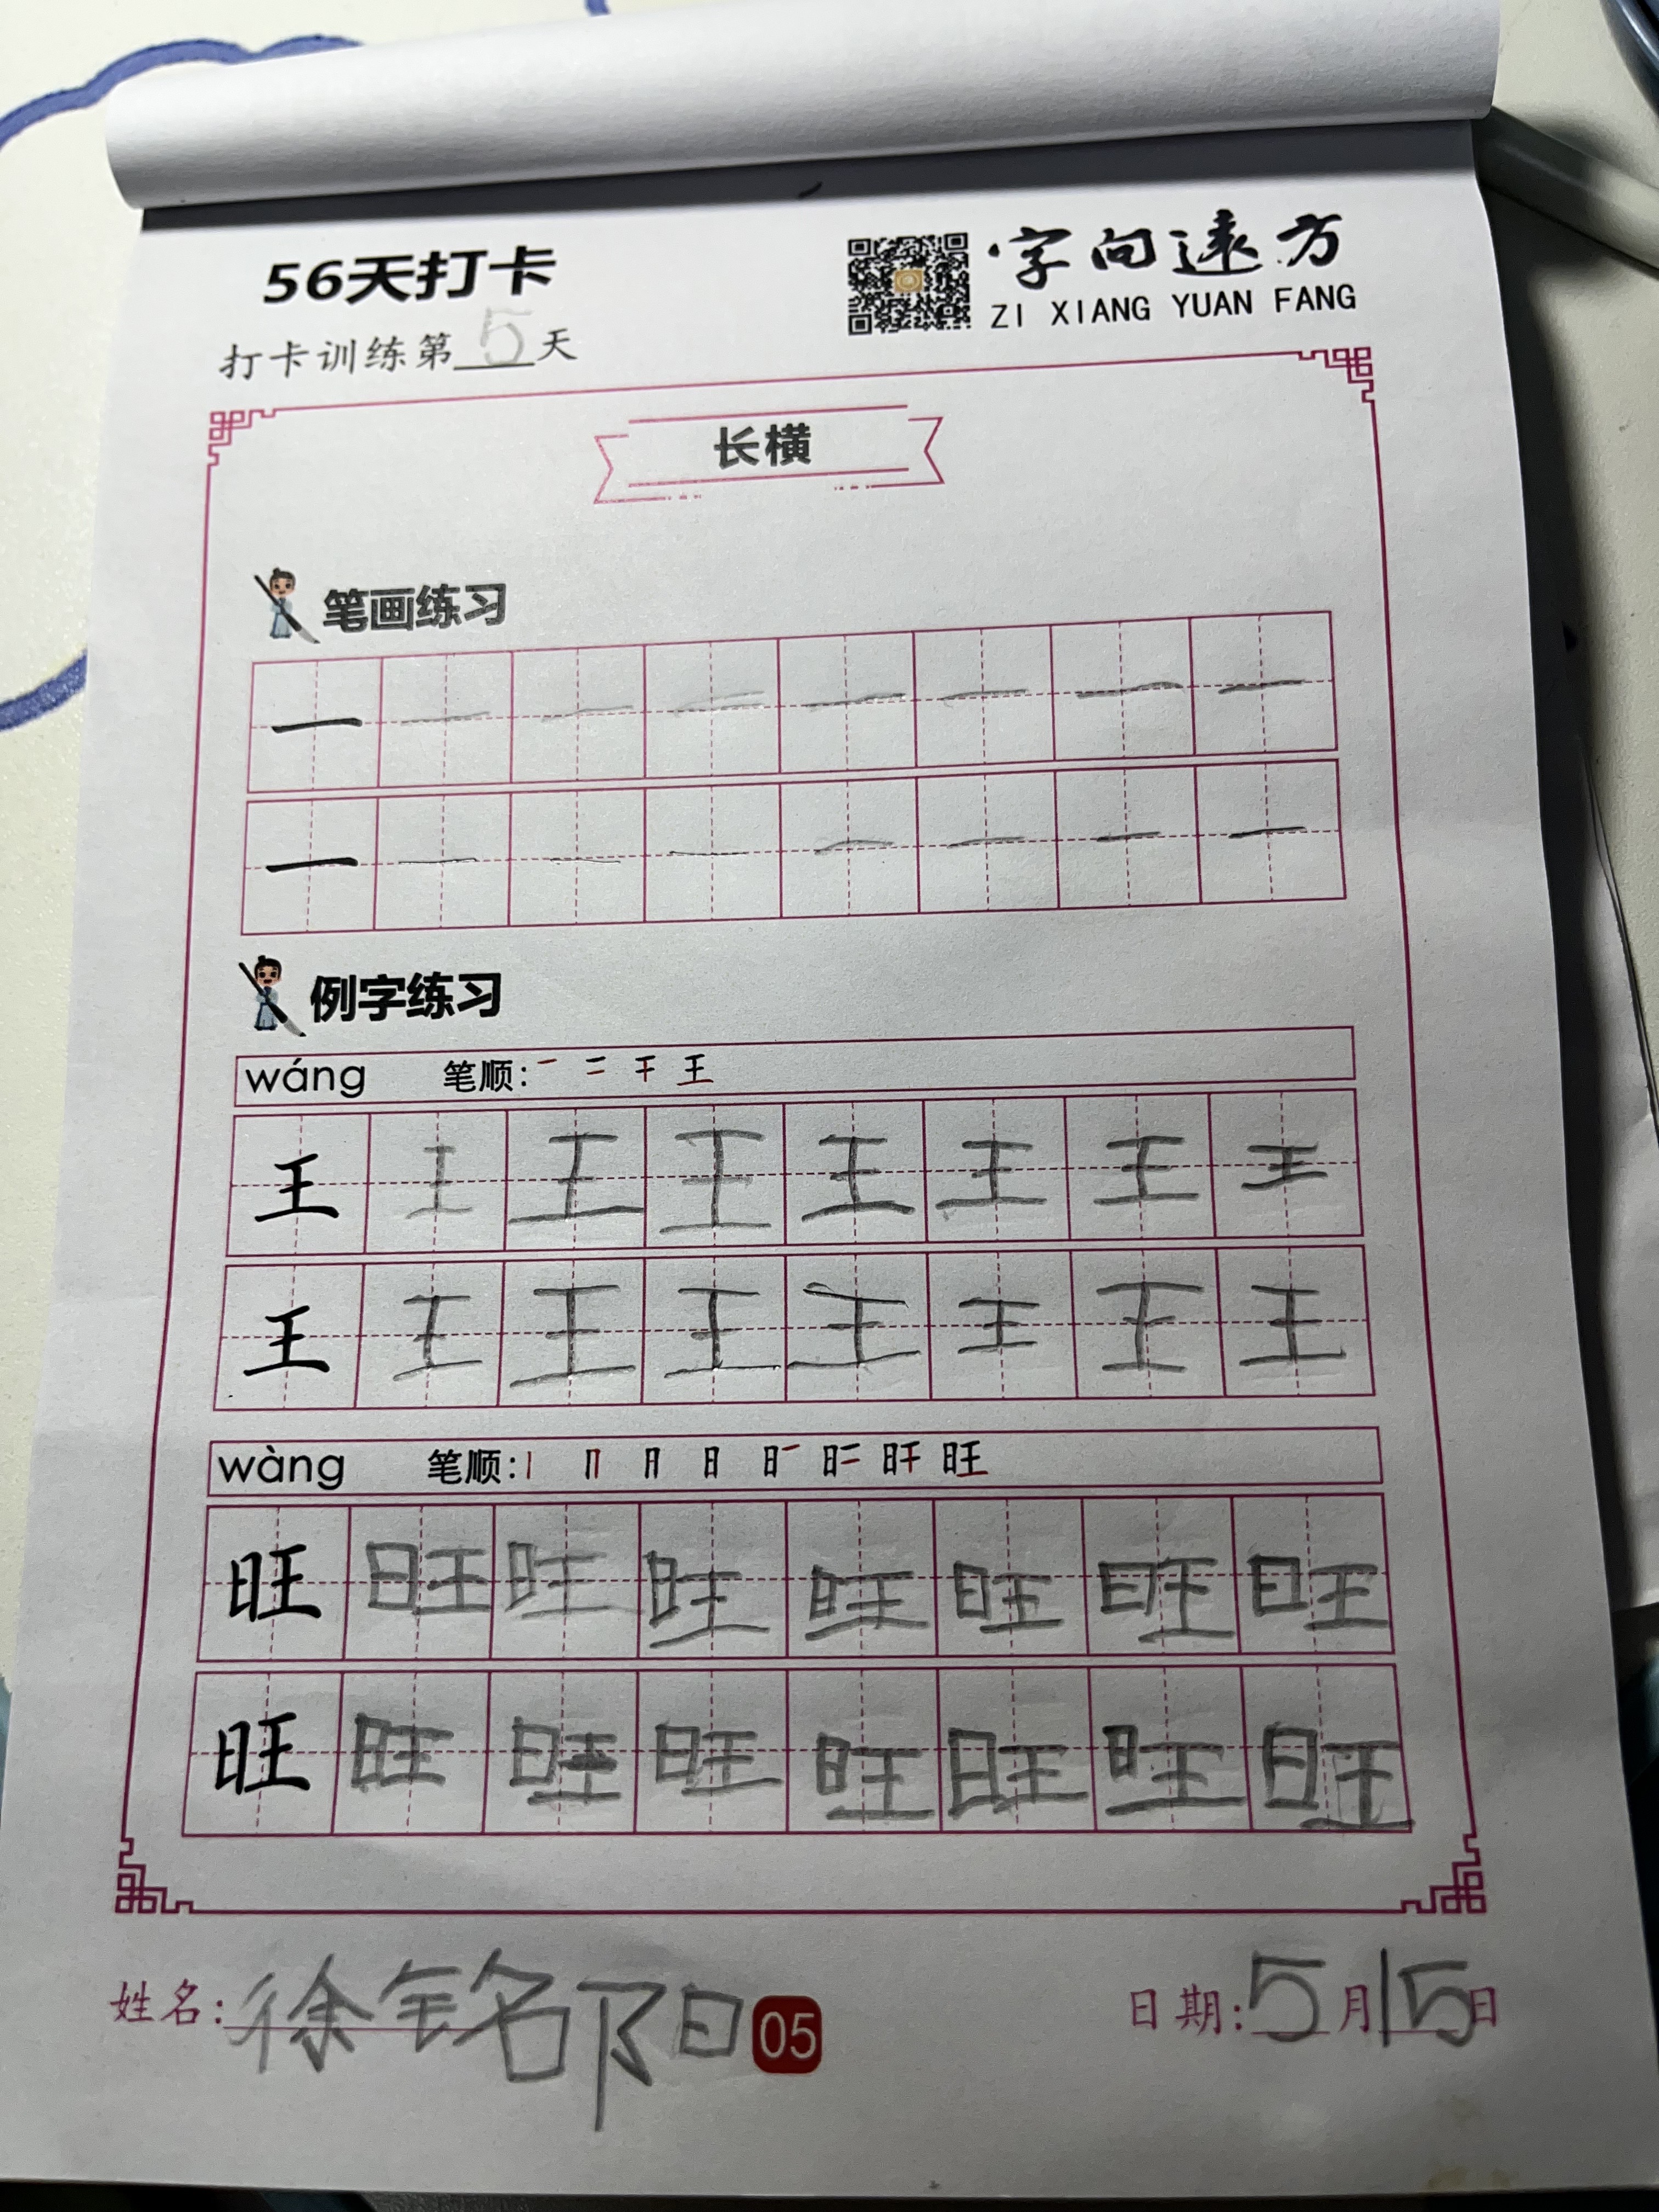 56天打卡
字向远方
ZI XIANG YUAN FANG
打卡训练第5天
长横
笔画练习
一 一 一 一 一 一 一 一
一 一 一 一 一 一 一 一
例字练习
wáng 笔顺: 一 二 干 王
王 王 王 王 王 王 王 王
王 王 王 王 王 王 王 王
wàng 笔顺: 丨 冂 月 日 旺
旺 旺 旺 旺 旺 旺 旺 旺
旺 旺 旺 旺 旺 旺 旺 旺
姓名: 徐铭阳 05 日期: 5月15日